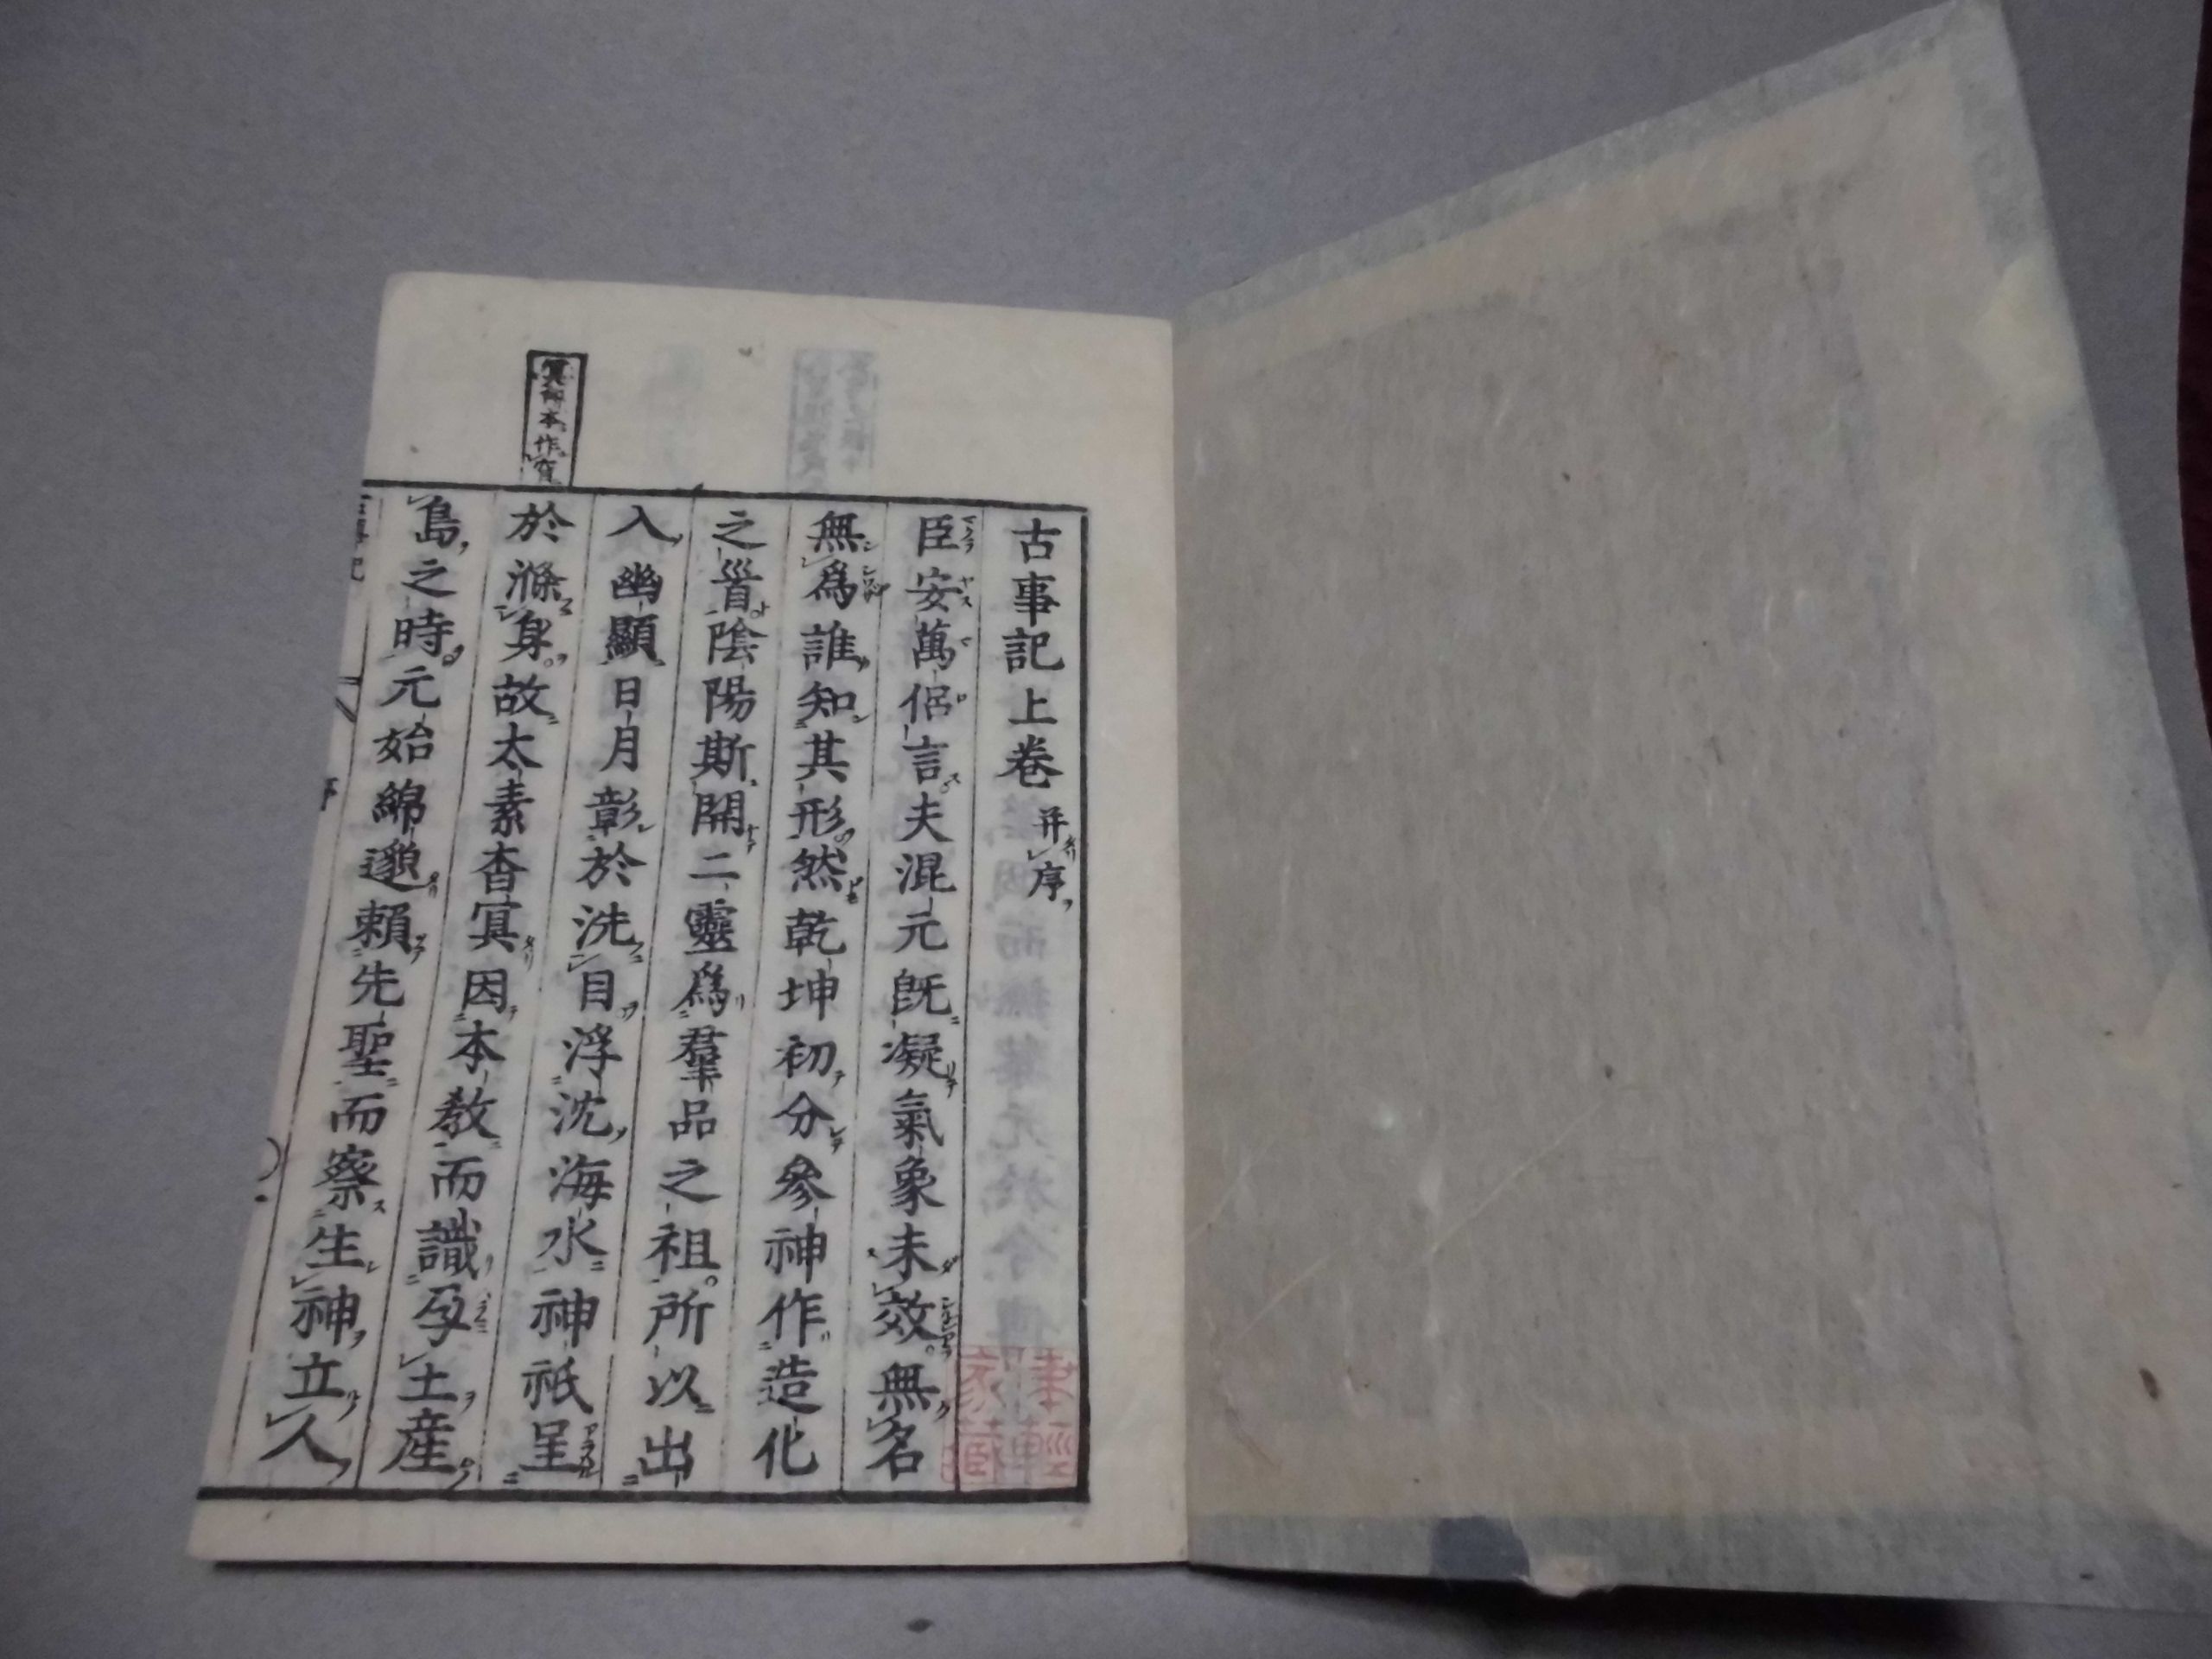 古事記上卷 并序
臣安萬侶言夫混元既凝氣象未效無名
無爲誰知其形然乾坤初分參神作造化
之首陰陽斯開二靈爲羣品之祖所以出
入幽顯日月彰於洗目浮沈海水神祇呈
於滌身故太素杳冥因本教而識孕土産
島之時元始綿邈頼先聖而察生神立人
冥印本作
序